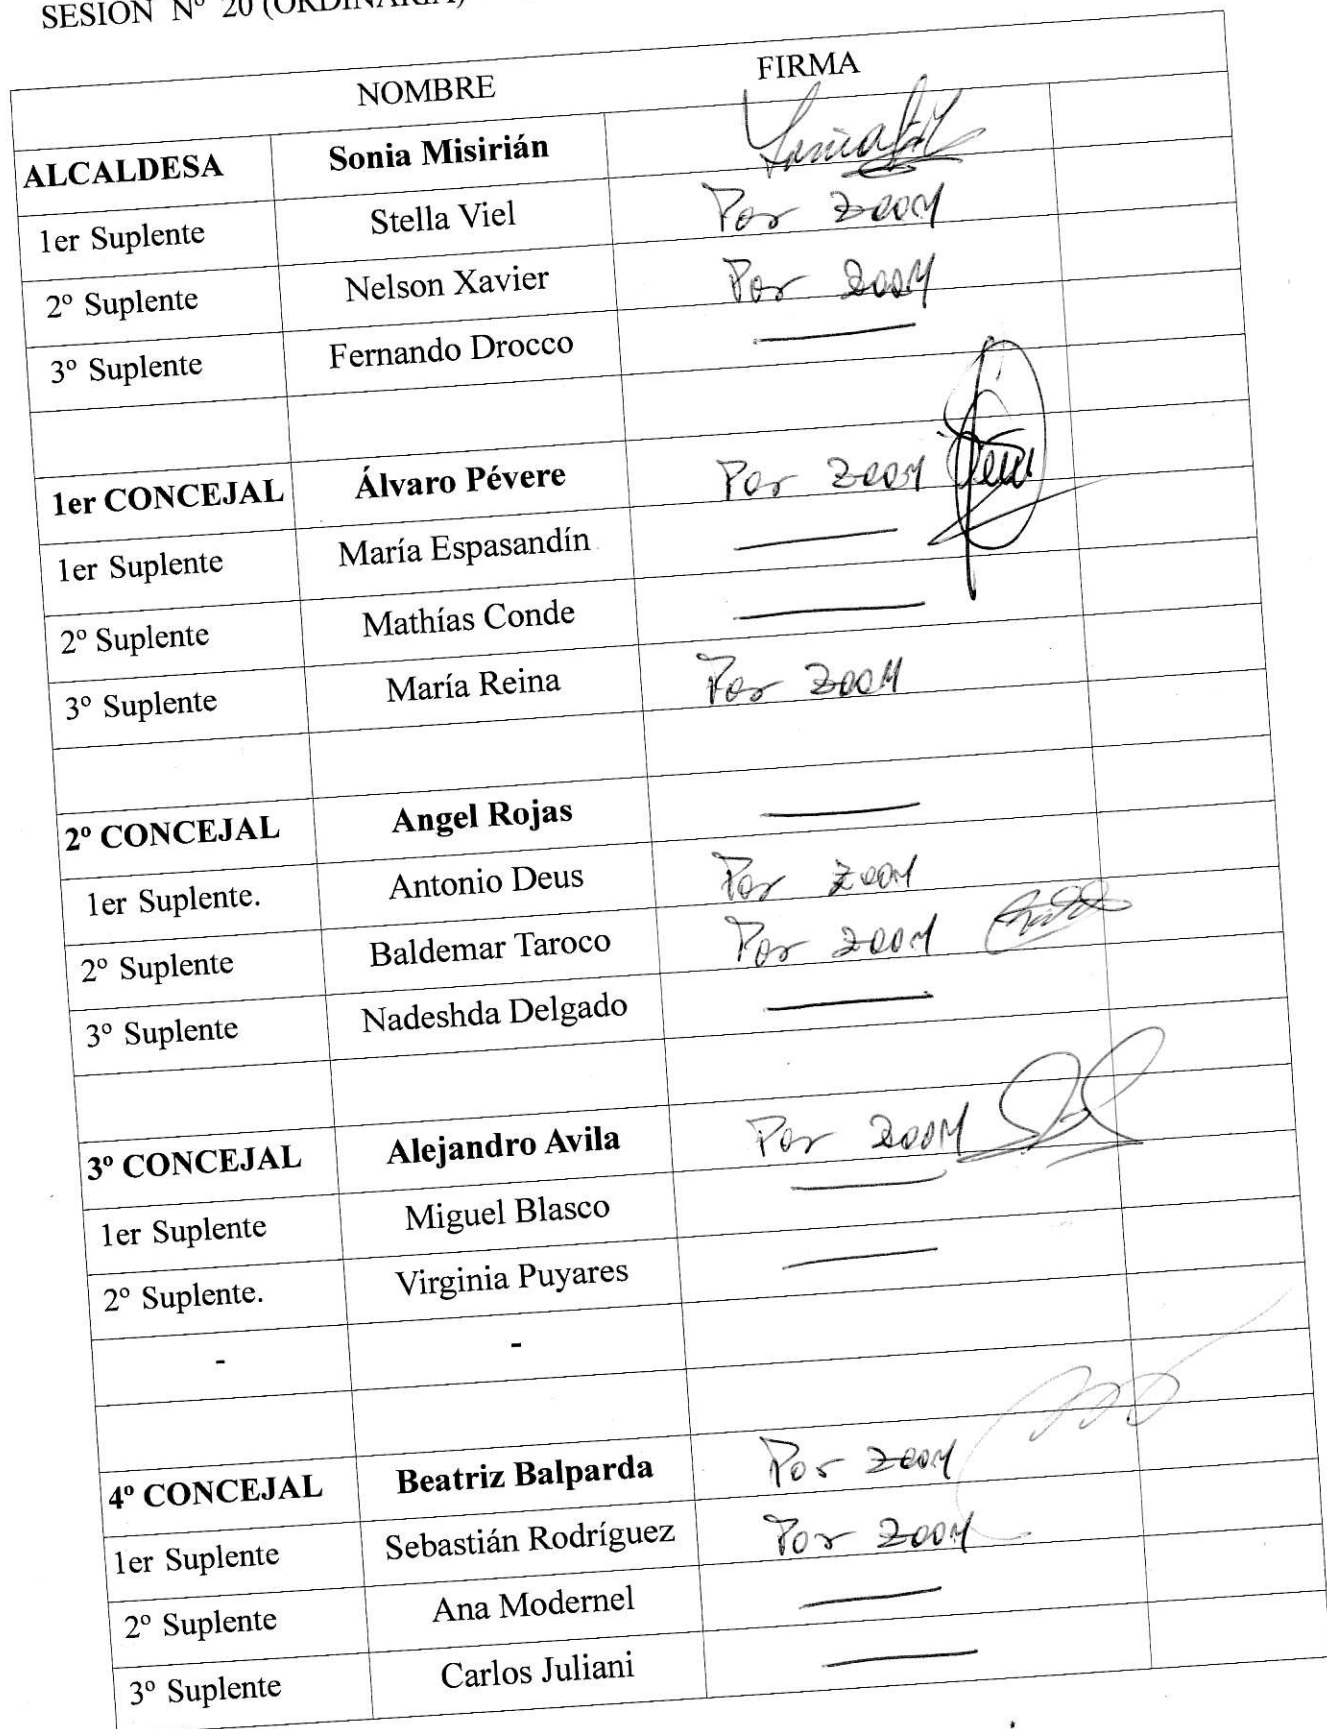 SESION Nº 20 (ORDINARIA)
NOMBRE FIRMA
ALCALDESA Sonia Misirián
1er Suplente Stella Viel Por ZOOM
2º Suplente Nelson Xavier Por ZOOM
3º Suplente Fernando Drocco —
1er CONCEJAL Álvaro Pévere Por ZOOM
1er Suplente María Espasandín —
2º Suplente Mathías Conde —
3º Suplente María Reina Por ZOOM
2º CONCEJAL Angel Rojas —
1er Suplente. Antonio Deus Por ZOOM
2º Suplente Baldemar Taroco Por ZOOM
3º Suplente Nadeshda Delgado —
3º CONCEJAL Alejandro Avila Por ZOOM
1er Suplente Miguel Blasco —
2º Suplente. Virginia Puyares —
- -
4º CONCEJAL Beatriz Balparda Por ZOOM
1er Suplente Sebastián Rodríguez Por ZOOM
2º Suplente Ana Modernel —
3º Suplente Carlos Juliani —